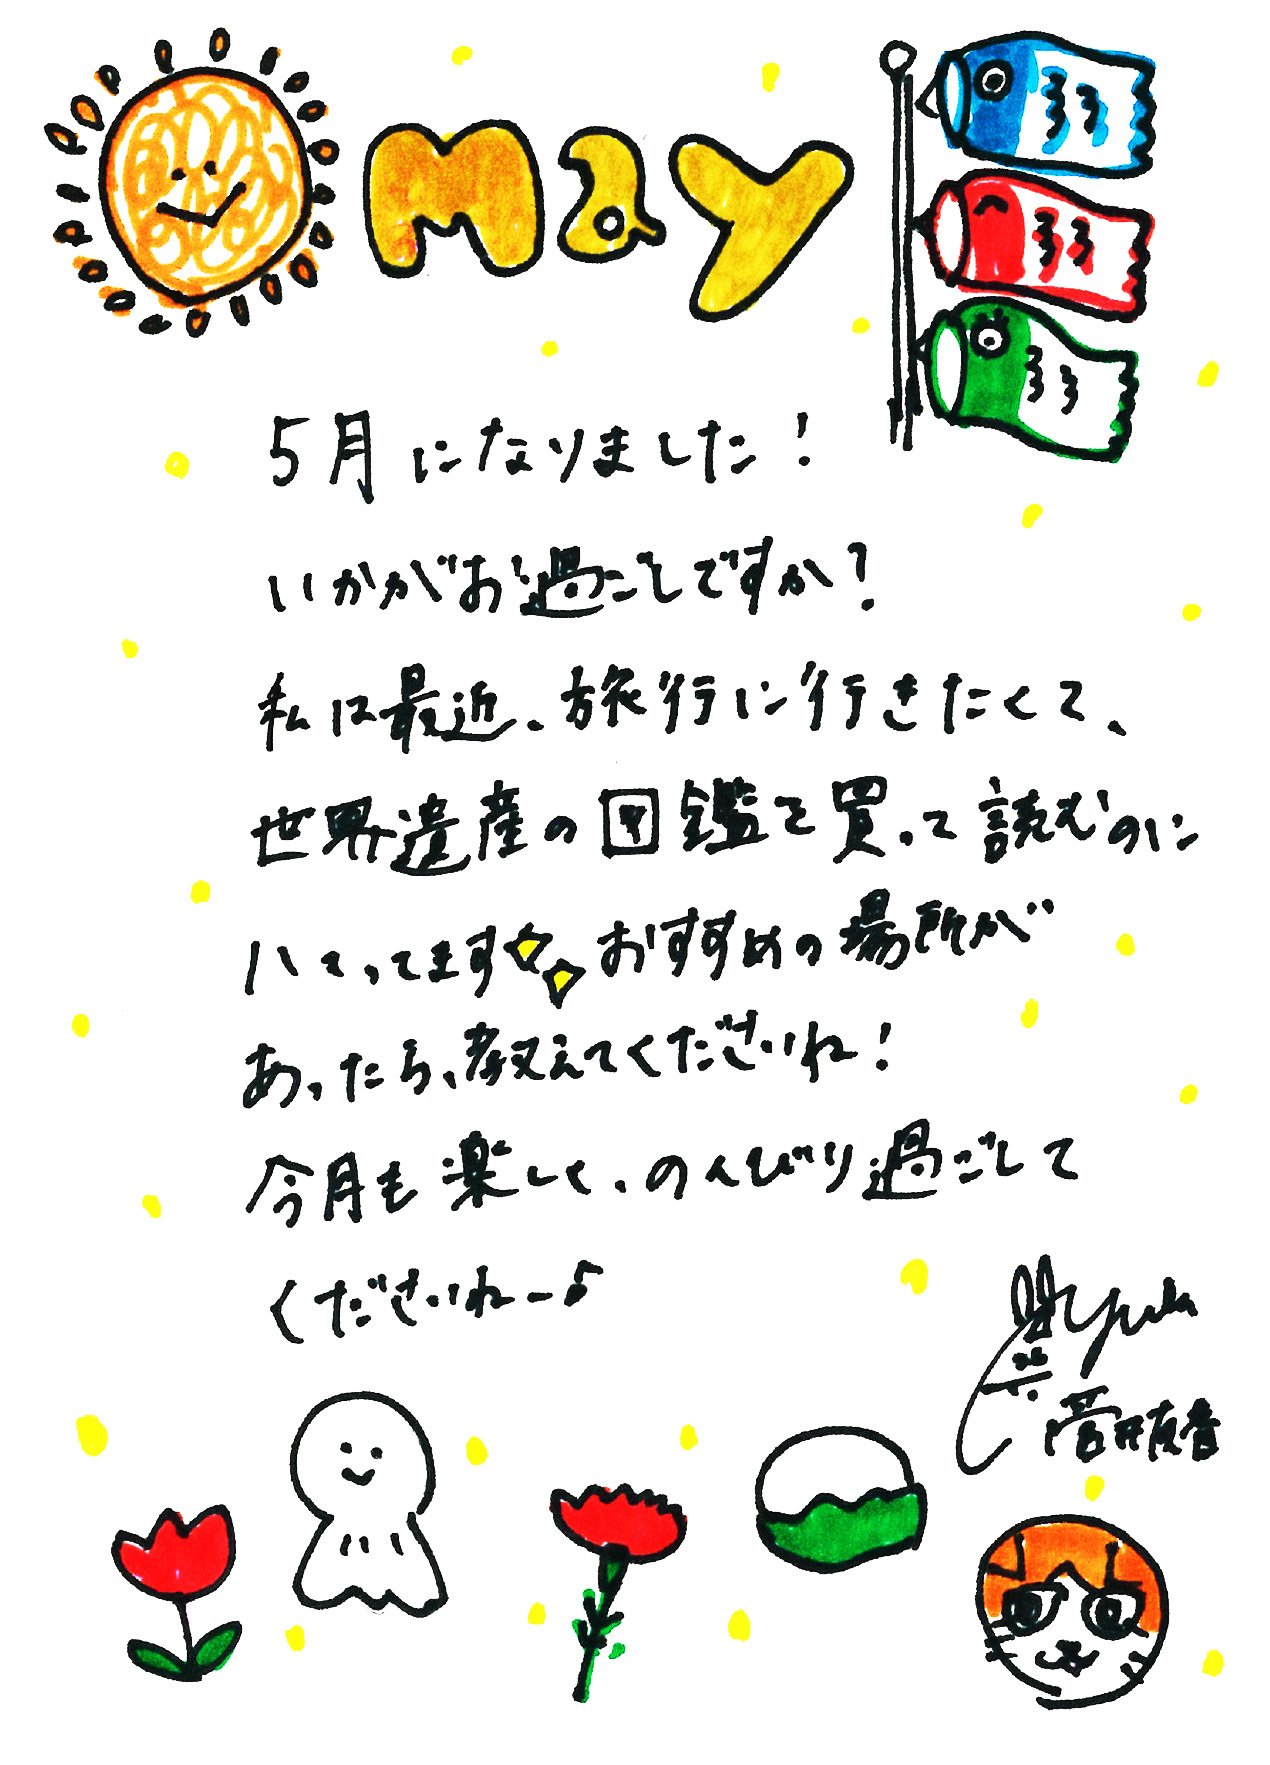 May
5月になりました!
いかがお過ごしですか?
私は最近、旅行に行きたくて、
世界遺産の図鑑を買って読むのに
ハマってます おすすめの場所が
あったら、教えてくださいね!
今月も楽しく、のんびり過ごして
くださいねー♪
菅井友香